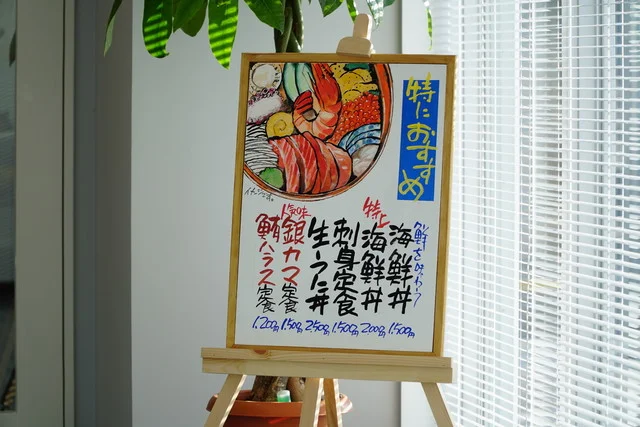 特におすすめ
鮮を味わう
海鮮丼 1,500円
特上海鮮丼 2,000円
刺身定食 1,500円
生ウニ丼 2,500円
銀カマ定食 1,500円
鮪ハラス定食 1,200円